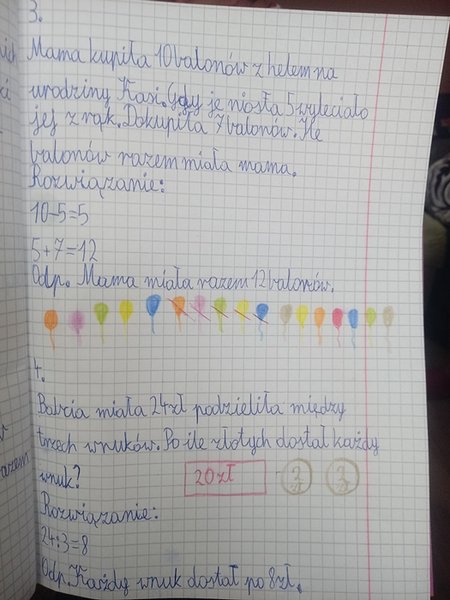 3.
Mama kupiła 10 balonów z helem na
urodziny Kasi. Gdy je niosła 5 wyleciało
jej z rąk. Dokupiła 7 balonów. Ile
balonów razem miała mama.
Rozwiązanie:
10-5=5
5+7=12
Odp. Mama miała razem 12 balonów.
4.
Babcia miała 24zł podzieliła między
trzech wnuków. Po ile złotych dostał każdy
wnuk? 20 zł 2 zł 2 zł
Rozwiązanie:
24:3=8
Odp. Każdy wnuk dostał po 8zł.